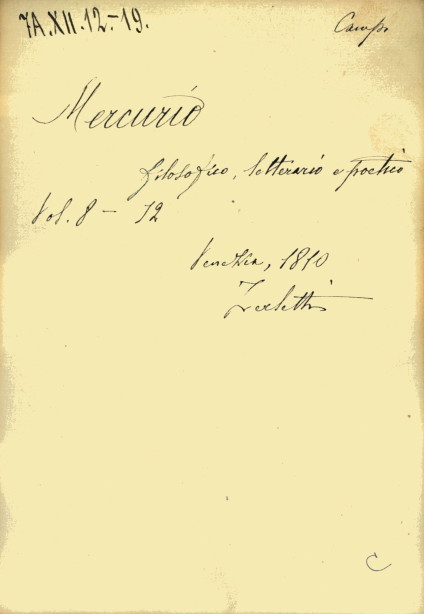 7A.XII.12.-19.
Camp.
Mercurio
filosofico, letterario e poetico
Vol. 8 - 12
Venezia, 1810
Zerletti
C